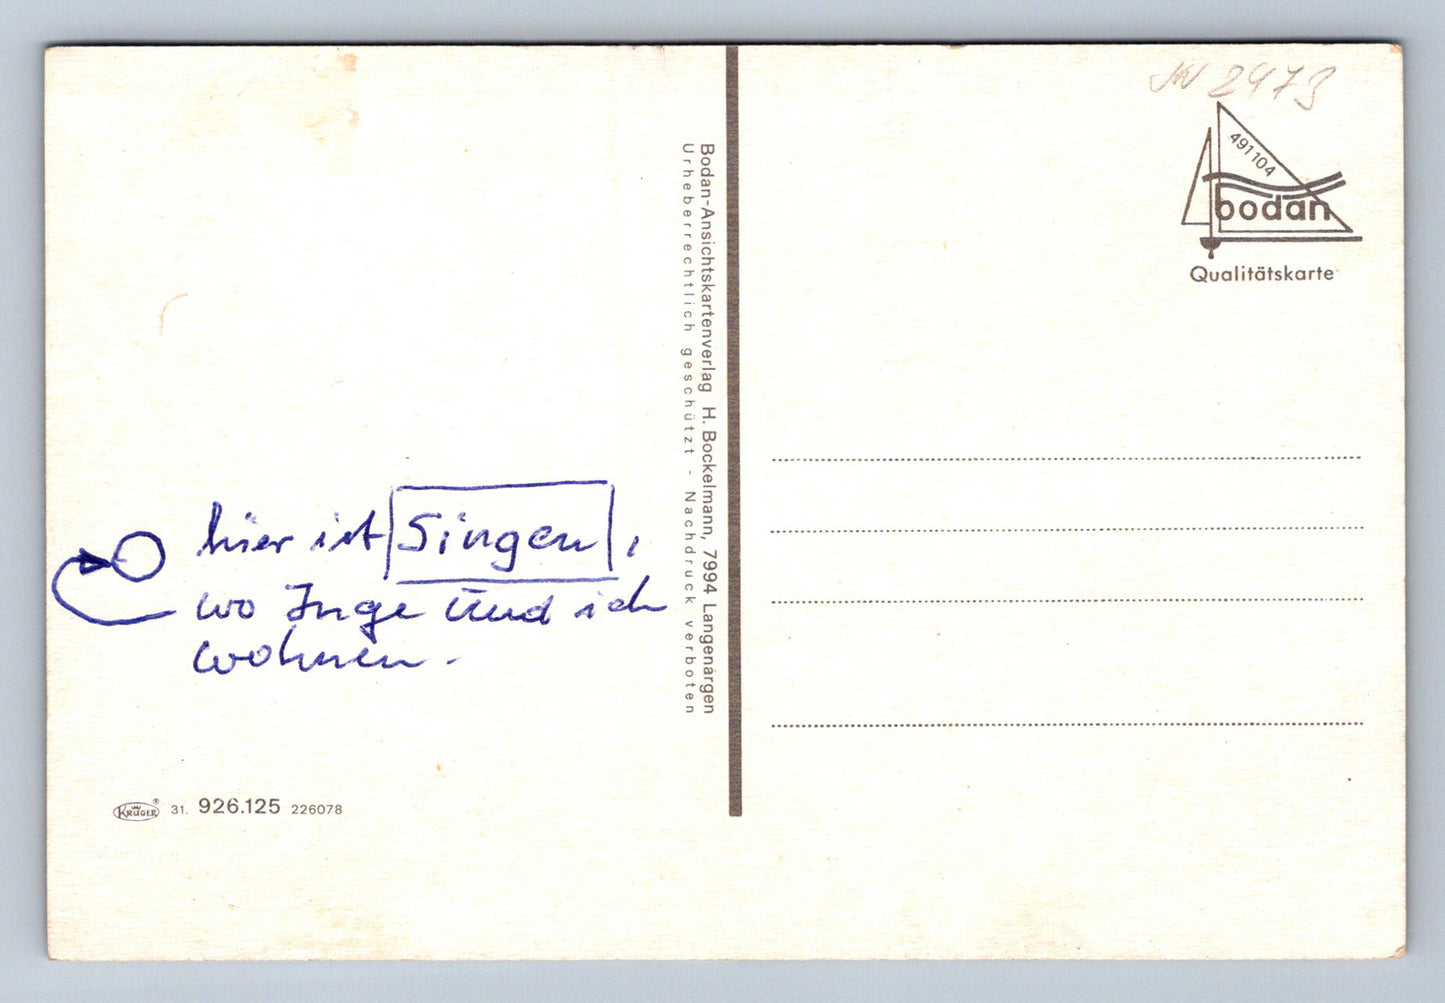 hier ist Singen,
wo Inge und ich
wohnen.
KRÜGER ® 31. 926.125 226078
Bodan-Ansichtskartenverlag H. Bockelmann, 7994 Langenargen
Urheberrechtlich geschützt - Nachdruck verboten
2473
491104
bodan
Qualitätskarte